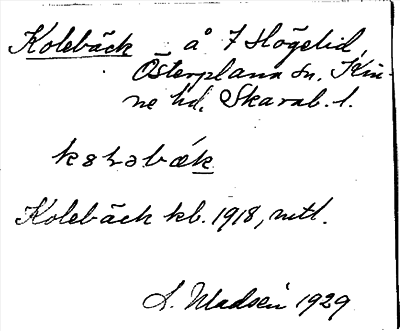 Kolebäck å 7 Högelid,
Österplana sn, Kin-
ne hd, Skarab. l.
Kolebäck kb. 1918, mtl.
A. Madsen 1929